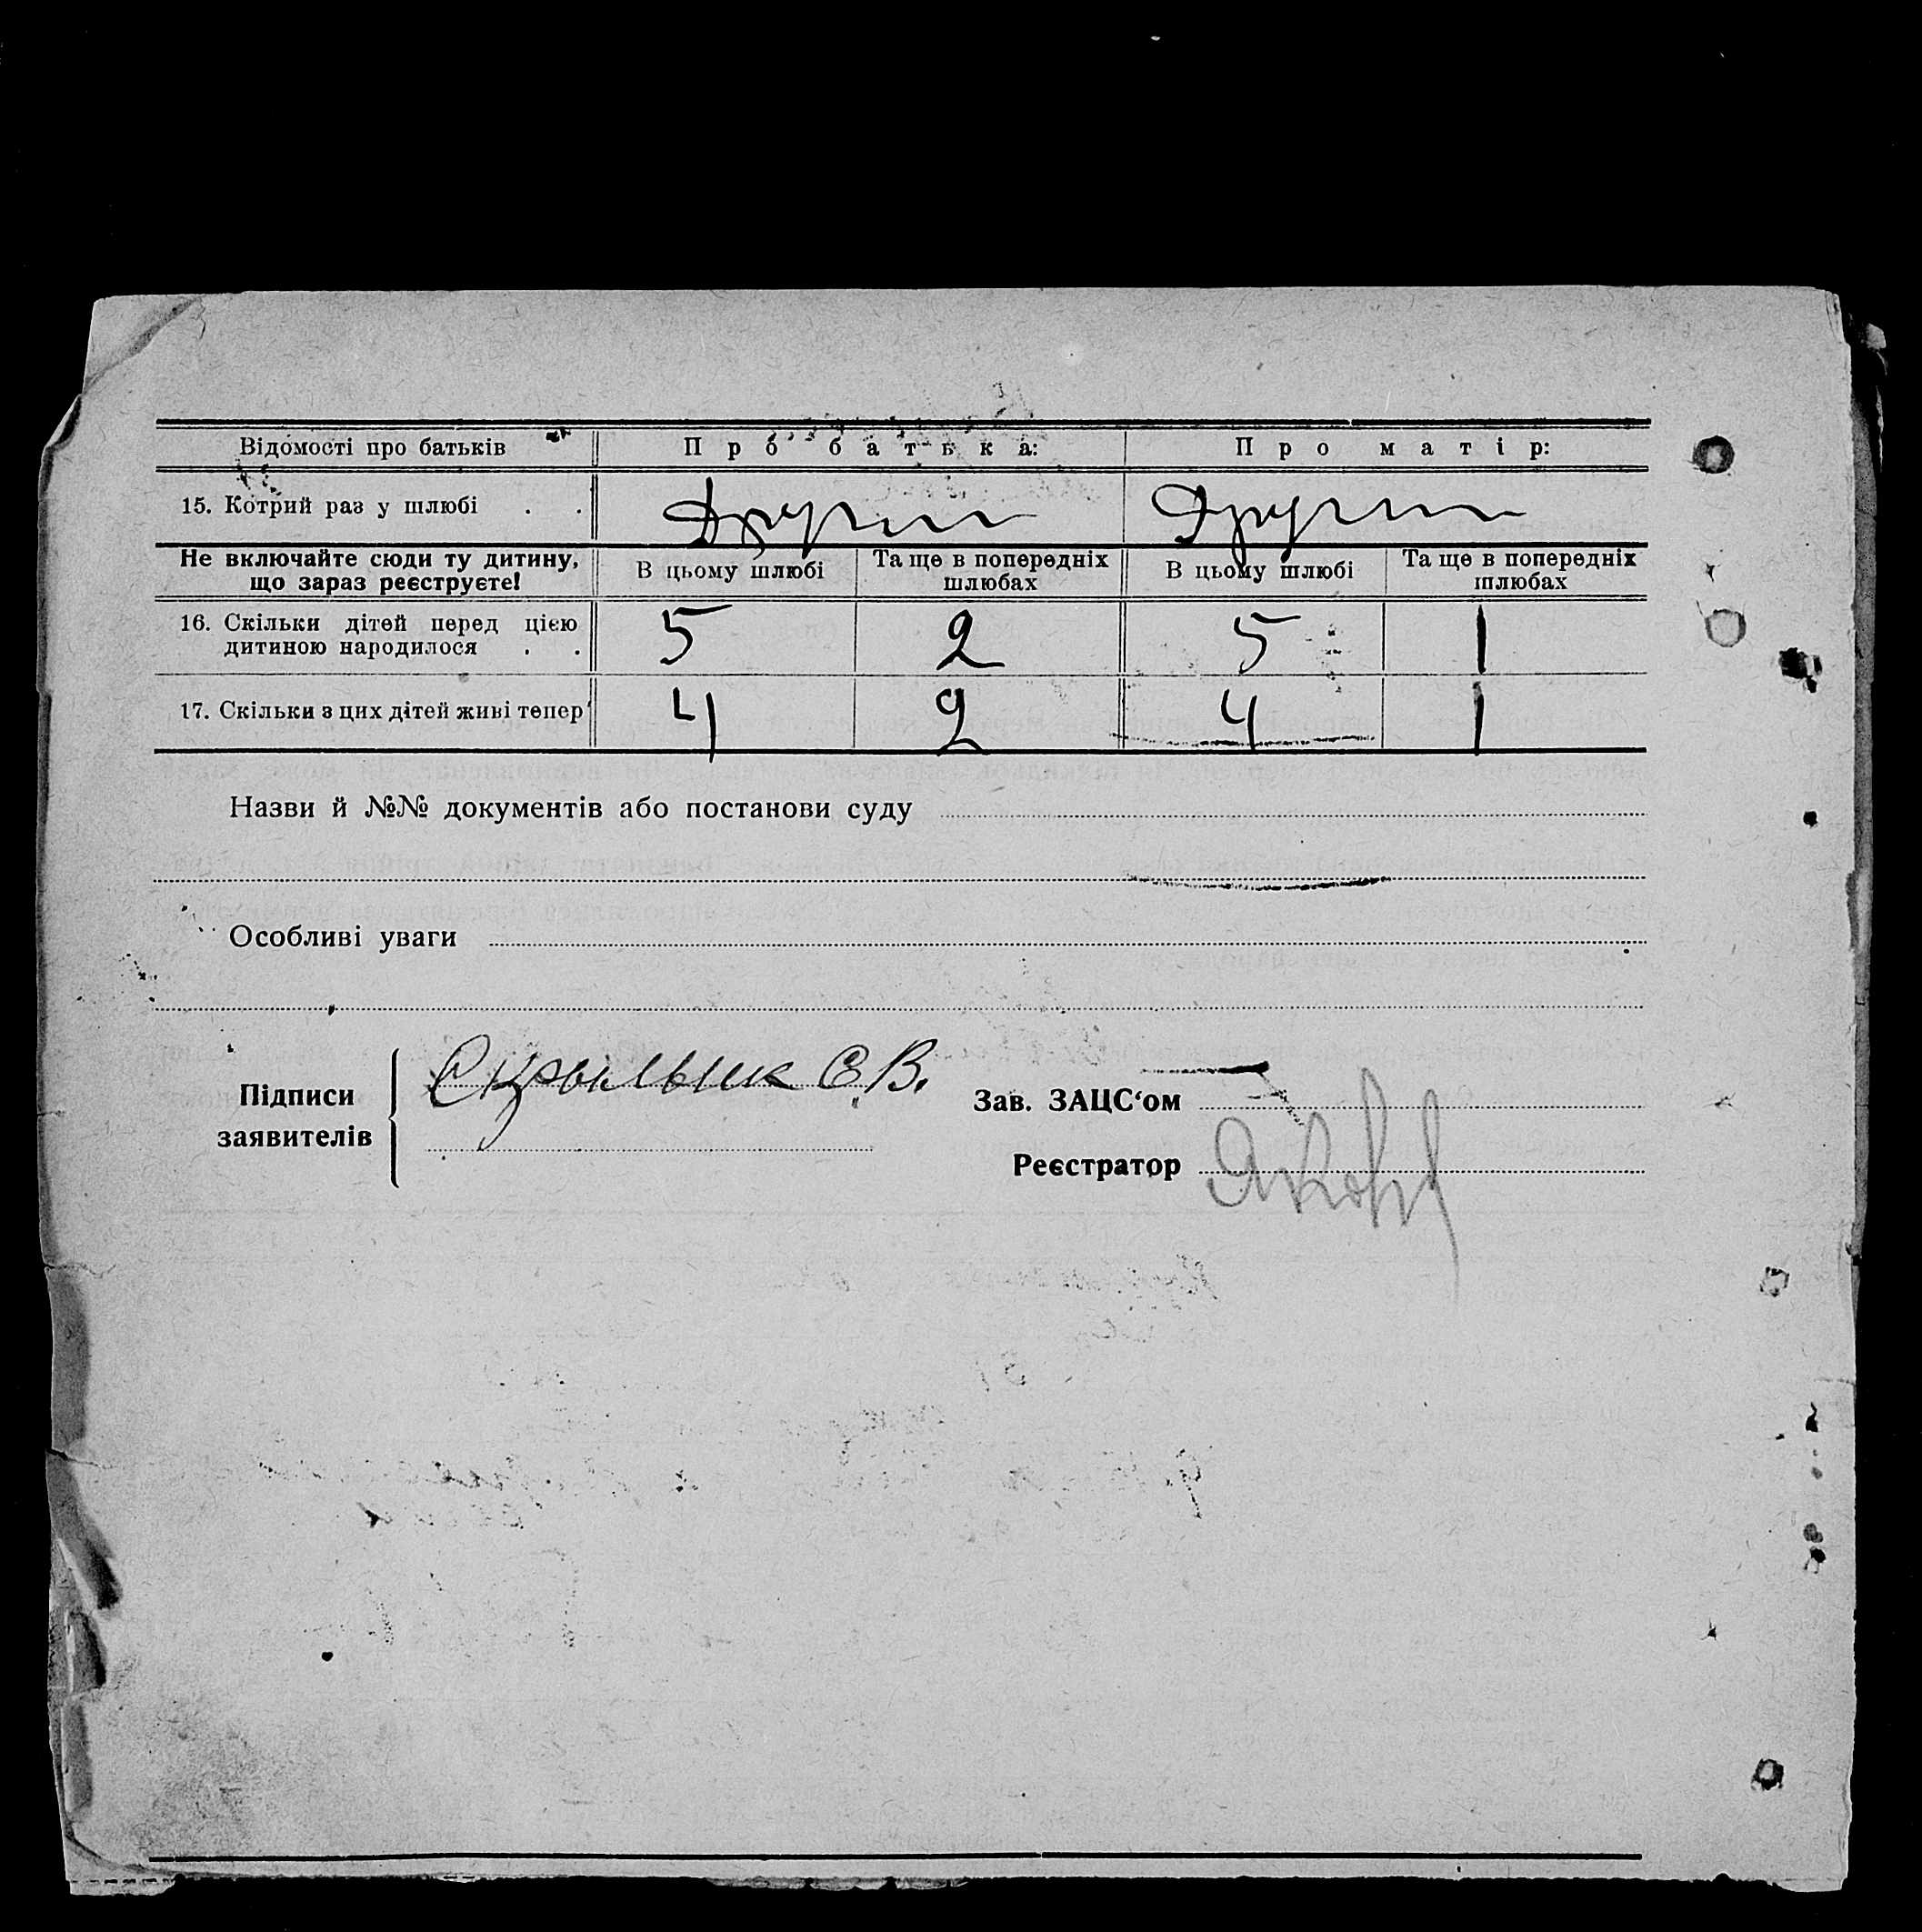 Відомості про батьків Про батька: Про матір:
15. Котрий раз у шлюбі . . Другий Другий
Не включайте сюди ту дитину, що зараз реєструєте! В цьому шлюбі Та ще в попередніх шлюбах В цьому шлюбі Та ще в попередніх шлюбах
16. Скільки дітей перед цією
дитиною народилося . . 5 2 5 1
17. Скільки з цих дітей живі тепер 4 2 4 1
Назви й №№ документів або постанови суду
Особливі уваги
Підписи заявителів Скрыльник Є.В.
Зав. ЗАЦС‘ом
Реєстратор